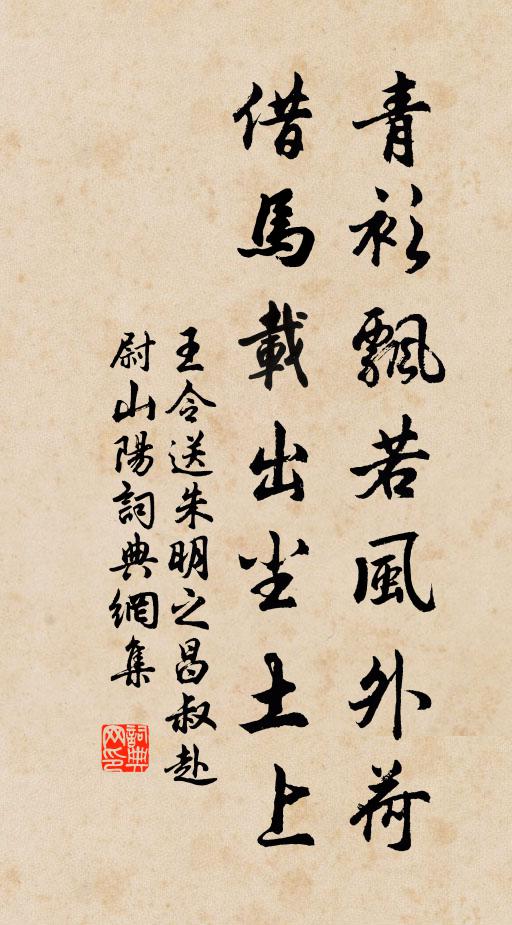 青衫飄若風外荷
借馬載出尘土上
王令送朱明之昌叔赴
尉山陽詞典網集
詞典
网印